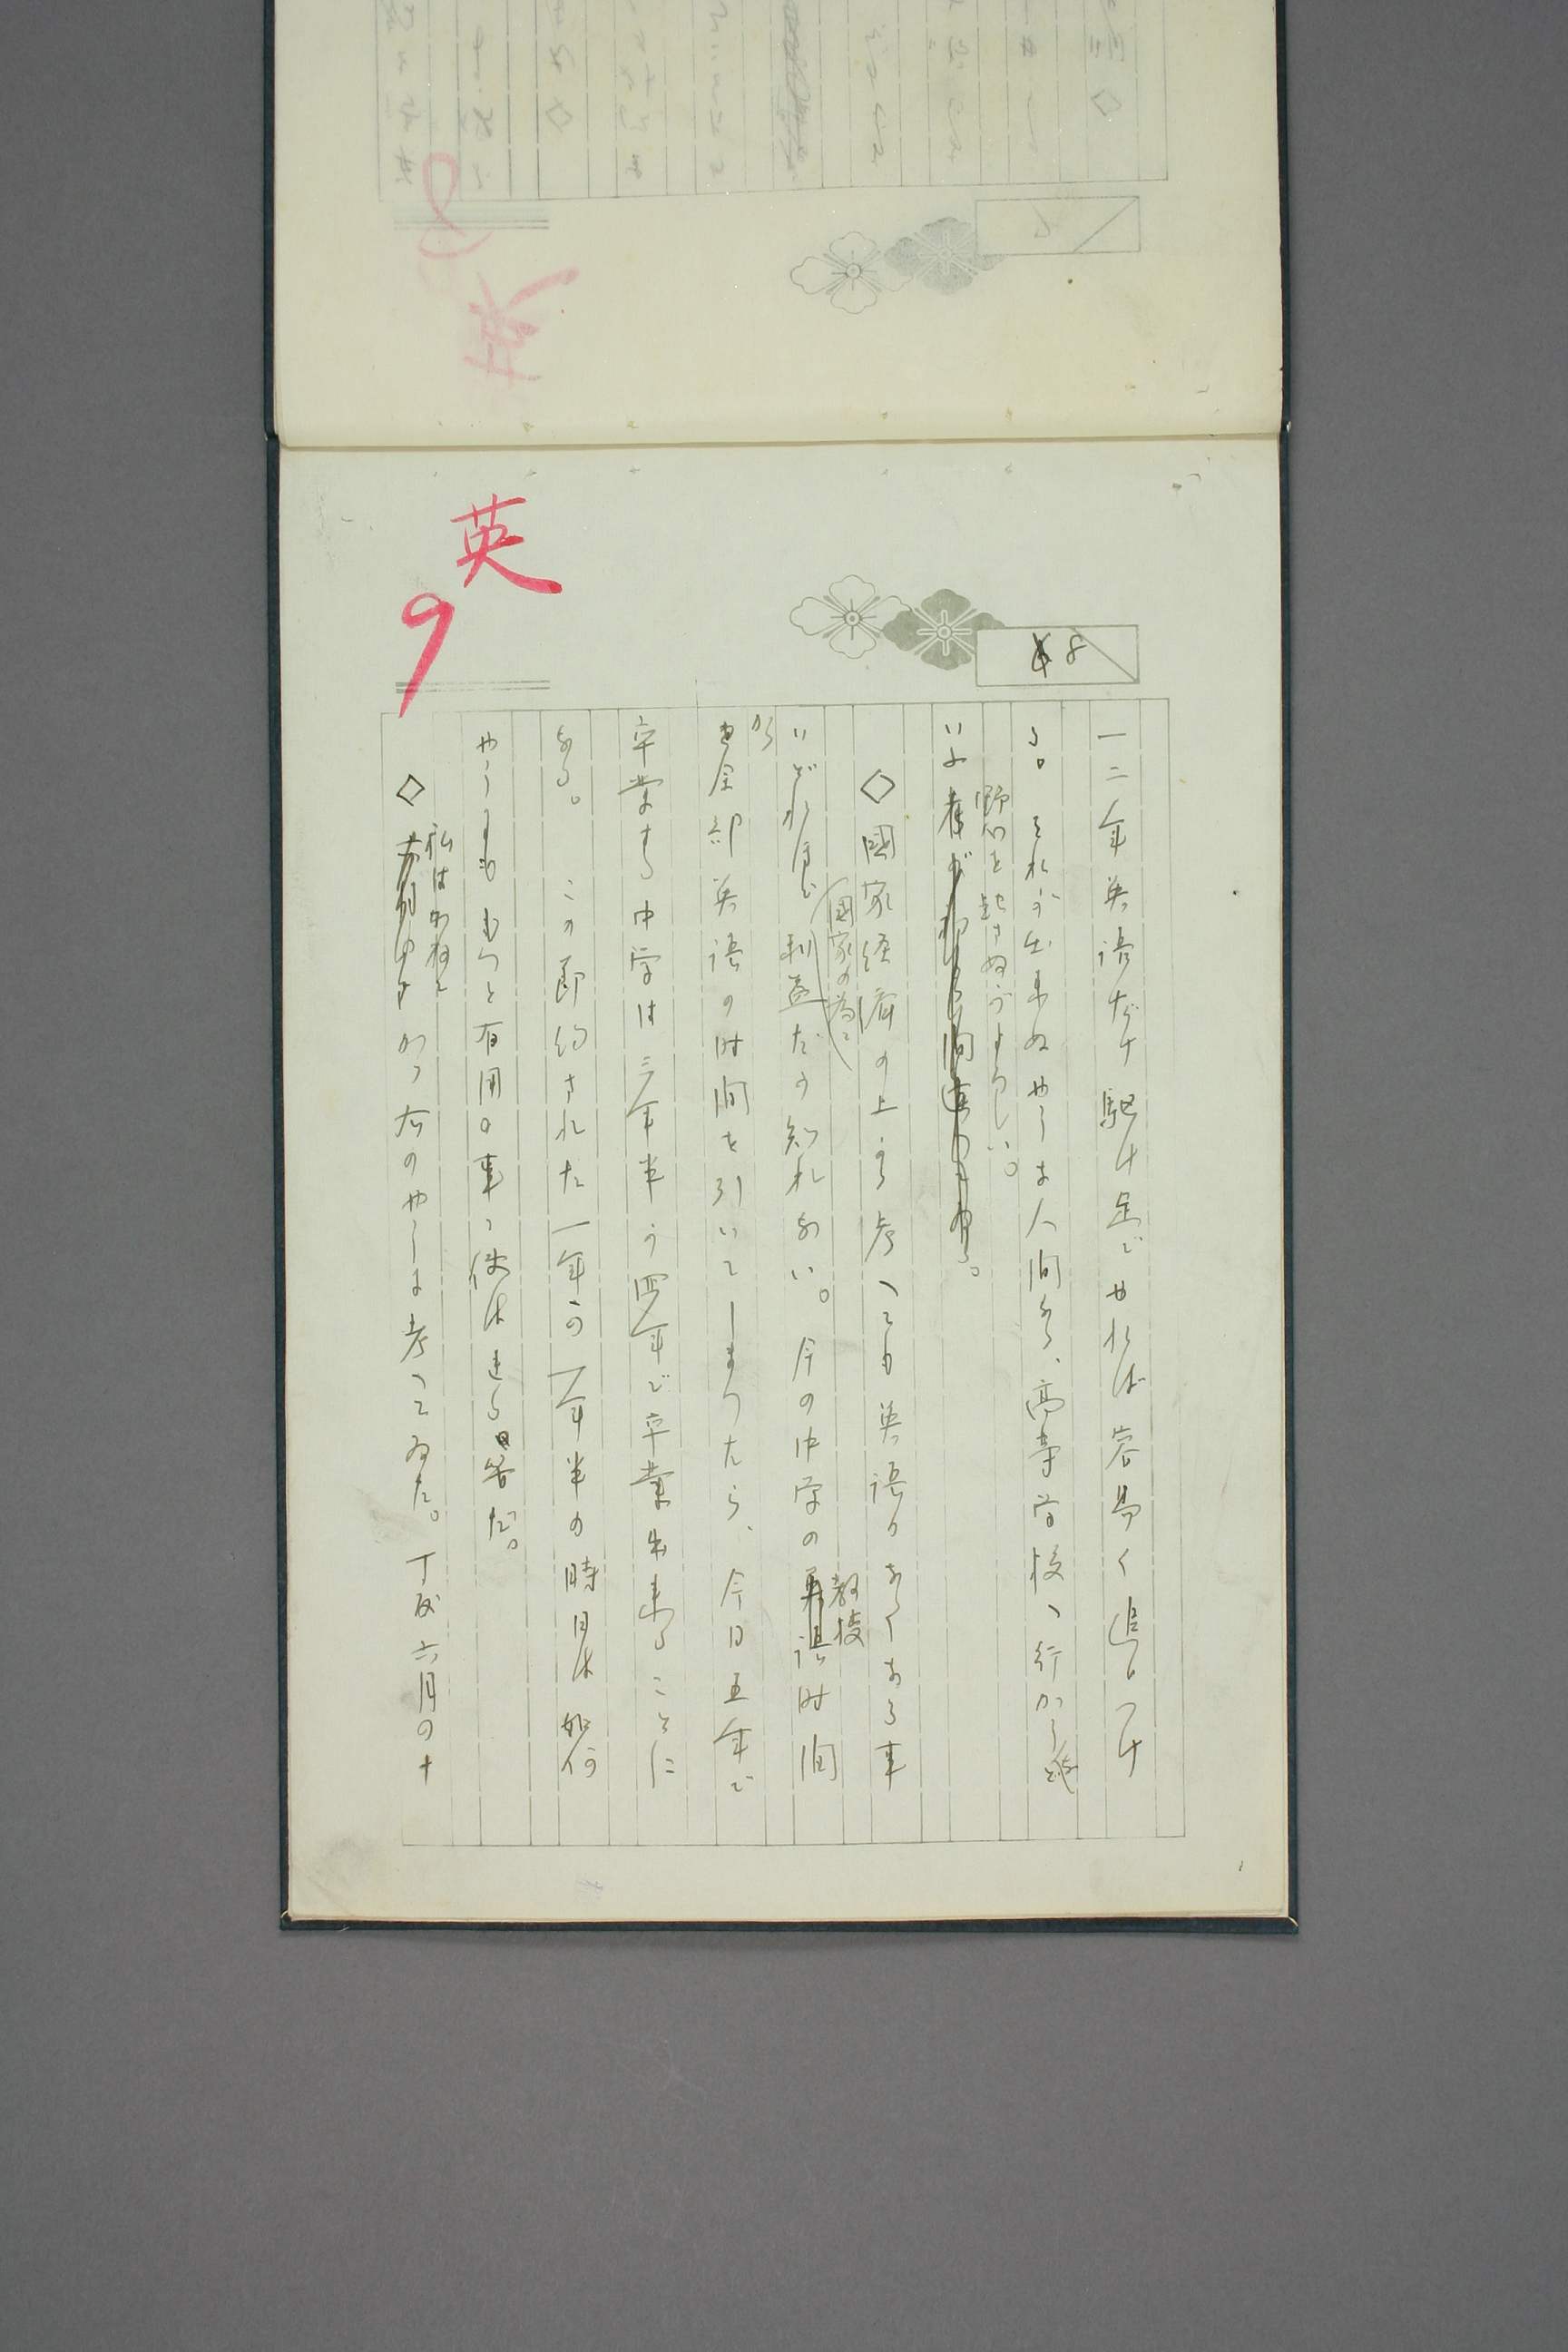 英
9
8
一二年英語だけ駈け足でやれば容易く追ひつけ
る。それが出来ぬやうな人間なら、高等学校へ行かう
野心を起さぬがよろしい。
いふ者が
◇國家経済の上から考へても英語のなくなる事
國家の為に
いどれほど利益だか知れない。今の中学の
教授
時間
から全部英語の時間を引いてしまつたら、今日五年で
卒業する中学は三年半か四年で卒業出来ることに
なる。この節約された一年か一年半の時日は如何
やうにももつと有用の事へ使は
る筈だ。
◇
私はかねて
かつ右のやうに考へてゐた。丁度六月の十